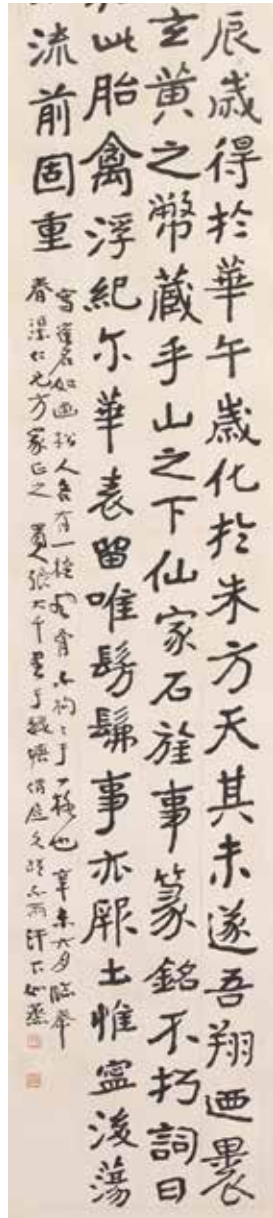 辰歲得於華午歲化於朱方天其未遂吾翔迺裹
玄黃之幣藏乎山之下仙家石旌事篆銘不朽詞曰
此胎禽浮紀尓華表留唯髣髴事亦厥土惟寧浚蕩
流前固重
寫如画松人各有一種不拘〻于一格也 辛未六月臨奉
仁兄方家正之 蜀人張大千 不雨汗下如蒸